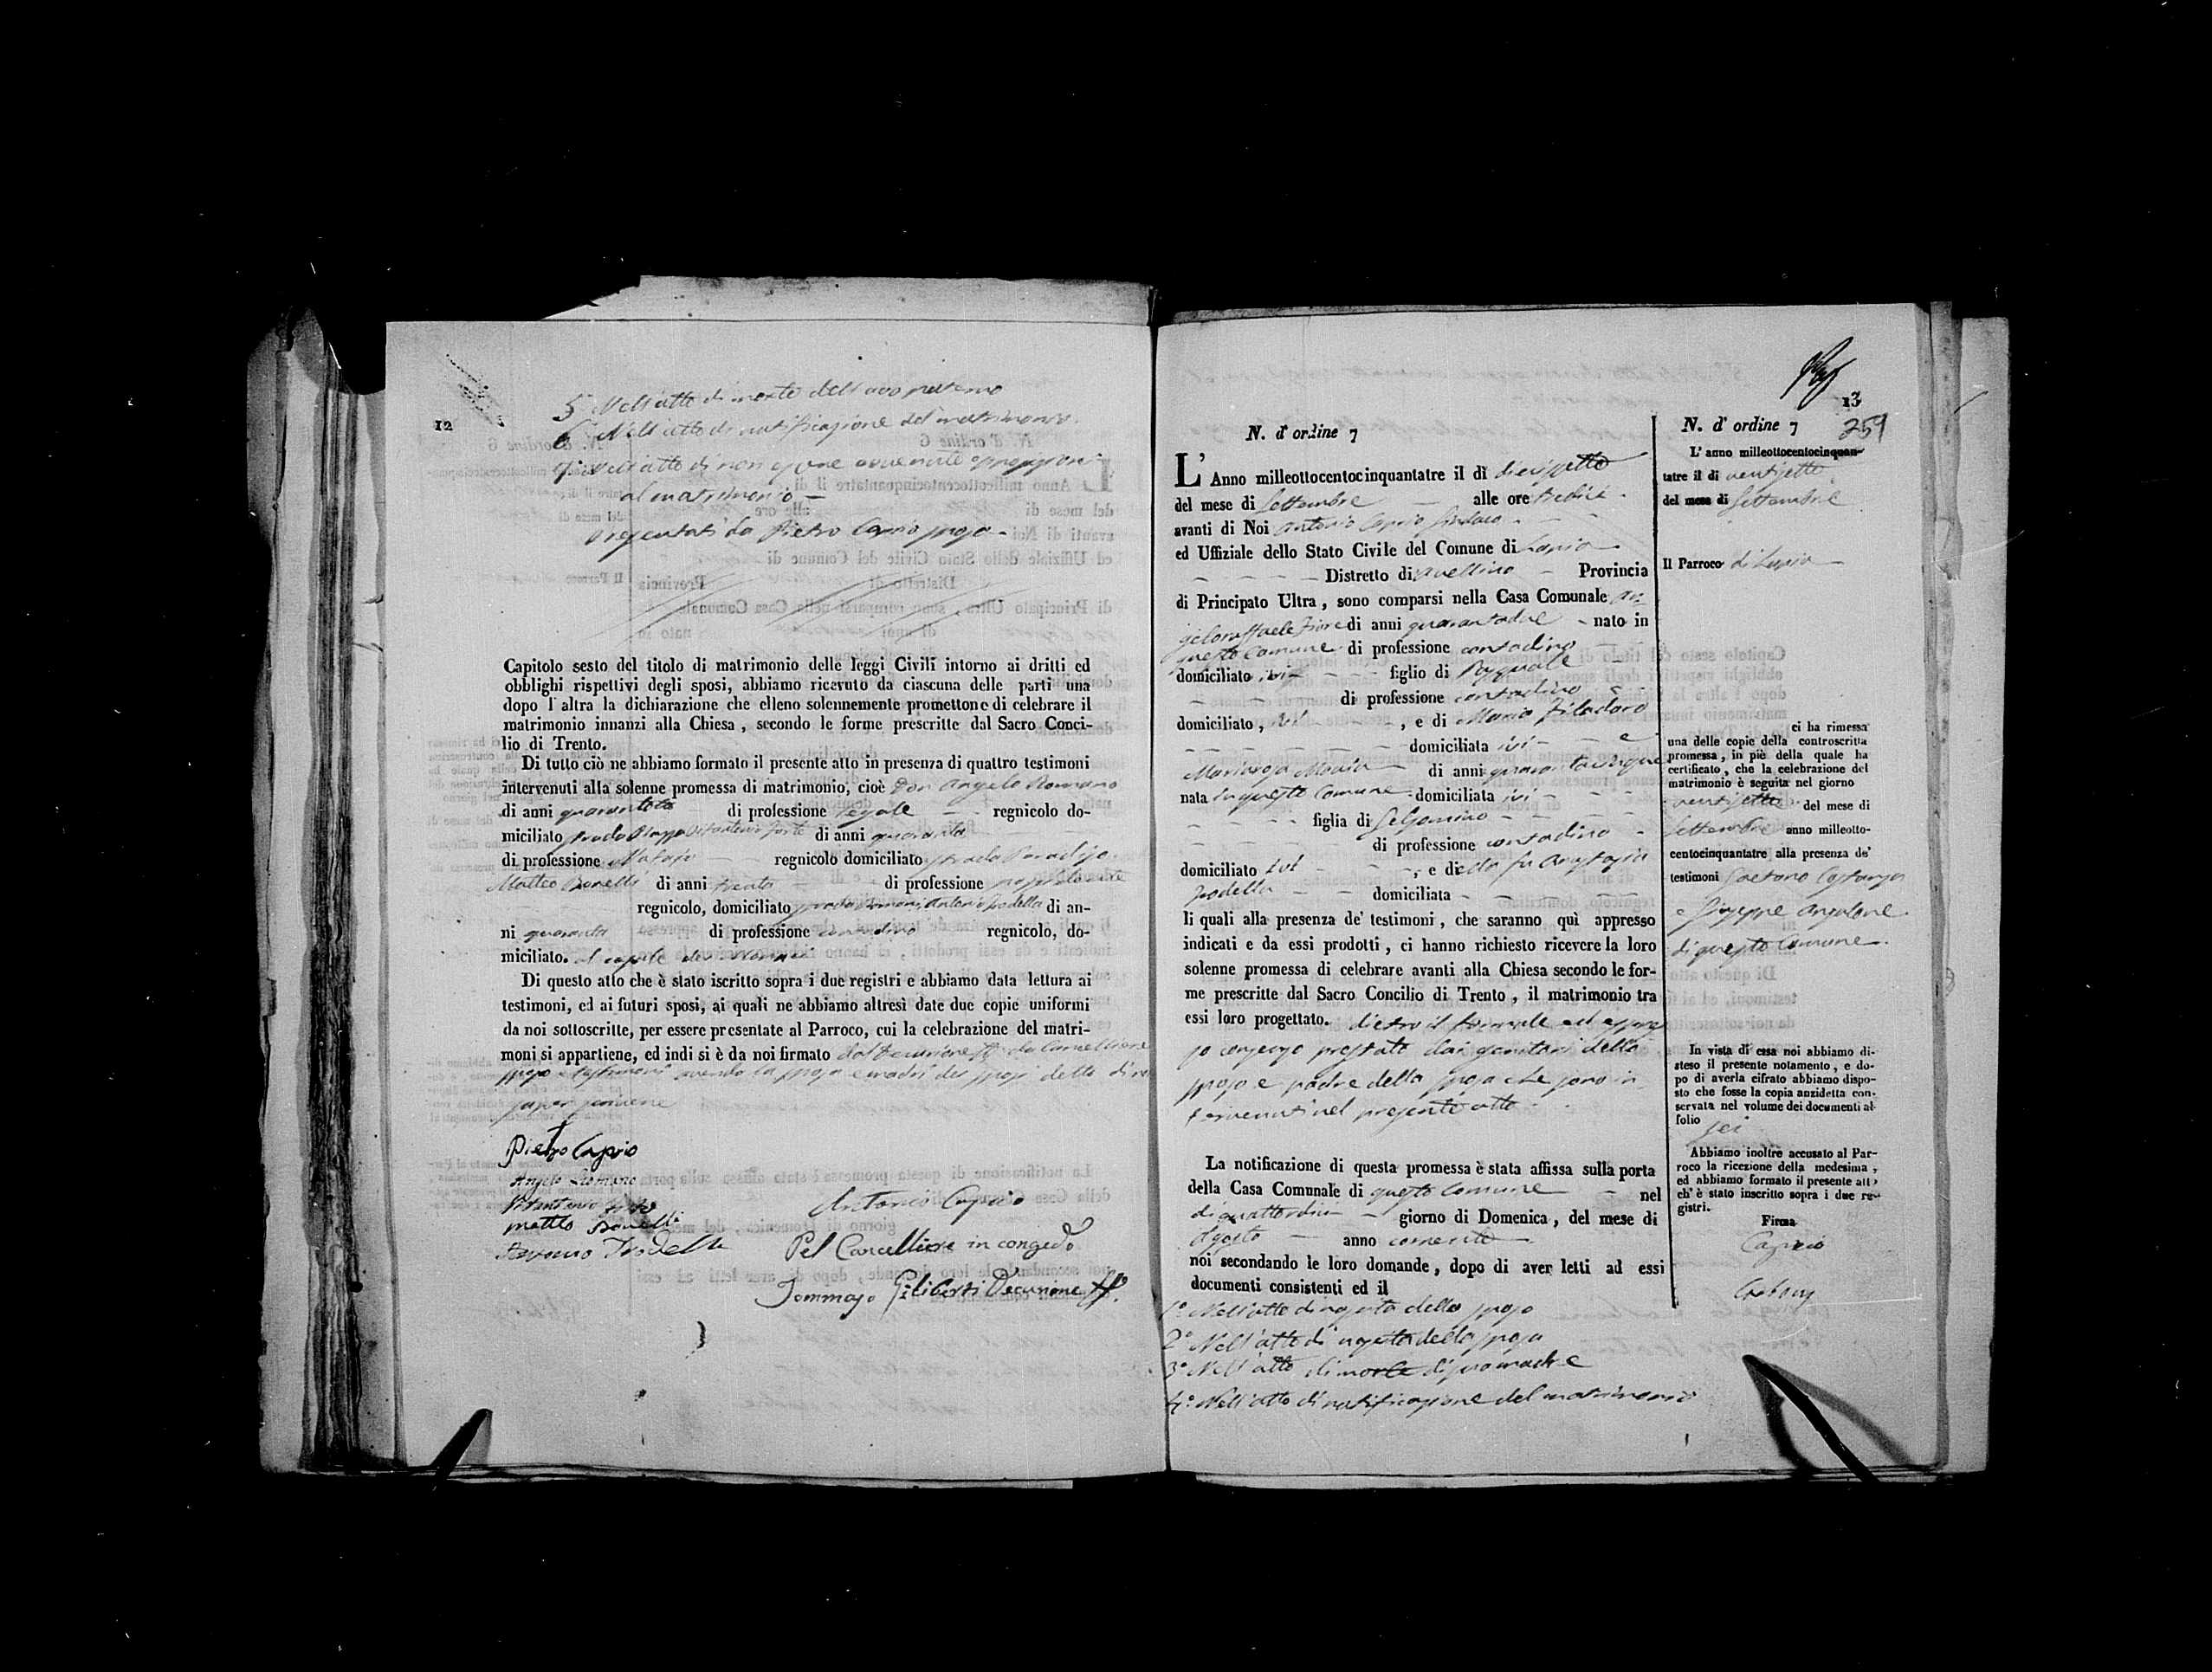 12
5° Nell'atto di morte dell'avo paterno
6° Nell'atto di notificazione del matrimonio
7° Nell'atto di non essere avvenute opposizioni
al matrimonio —
Presentati da Pietro Caprio sposo.
Capitolo sesto del titolo di matrimonio delle leggi Civili intorno ai dritti ed
obblighi rispettivi degli sposi, abbiamo ricevuto da ciascuna delle parti una
dopo l'altra la dichiarazione che elleno solennemente promettono di celebrare il
matrimonio innanzi alla Chiesa, secondo le forme prescritte dal Sacro Conci-
lio di Trento.
Di tutto ciò ne abbiamo formato il presente atto in presenza di quattro testimoni
intervenuti alla solenne promessa di matrimonio, cioè Don Angelo Romano
di anni quarantotto di professione legale regnicolo do-
miciliato strada Piazza Vitantonio Forte di anni quaranta
di professione Notajo regnicolo domiciliato strada Paradiso
Matteo Bonelli di anni trenta di professione proprietario
regnicolo, domiciliato strada Antonio Jrodella di an-
ni quaranta di professione contadino regnicolo, do-
miciliato.
Di questo atto che è stato iscritto sopra i due registri e abbiamo data lettura ai
testimoni, ed ai futuri sposi, ai quali ne abbiamo altresì date due copie uniformi
da noi sottoscritte, per essere presentate al Parroco, cui la celebrazione del matri-
moni si appartiene, ed indi si è da noi firmato dal Decurione ff. da Cancelliere
sposo e testimoni avendo la sposa e madri dei sposi detto di non
saper scrivere
Pietro Caprio
Angelo Romano
Vitantonio Forte
Matteo Bonelli
Antonio Jrodella
Antonio Caprio
Pel Cancelliere in congedo
Tommaso Filiberti Decurione ff.
13
259
N. d'ordine 7
L'Anno milleottocentocinquantatre il dì diecissette
del mese di Settembre alle ore tredici
avanti di Noi Antonio Caprio Sindaco
ed Uffiziale dello Stato Civile del Comune di Lapio
Distretto di Avellino Provincia
di Principato Ultra, sono comparsi nella Casa Comunale An-
geloraffaele Fiore di anni quarantadue nato in
questo Comune di professione contadino
domiciliato ivi figlio di Pasquale
di professione contadino
domiciliato, ivi, e di Maria Filadoro
domiciliata ivi e
Mariarosa di anni quarantacinque
nata in questo Comune domiciliata ivi
figlia di Gelsomino
di professione contadino
domiciliato ivi, e di della fu Anastasia
Jrodella domiciliata
li quali alla presenza de' testimoni, che saranno quì appresso
indicati e da essi prodotti, ci hanno richiesto ricevere la loro
solenne promessa di celebrare avanti alla Chiesa secondo le for-
me prescritte dal Sacro Concilio di Trento, il matrimonio tra
essi loro progettato. dietro il formale ed espres
so consenso prestato dai genitori dello
sposo e padre della sposa che sono in
tervenuti nel presente atto
La notificazione di questa promessa è stata affissa sulla porta
della Casa Comunale di questo Comune nel
dì quattordici giorno di Domenica, del mese di
Agosto anno corrente
noi secondando le loro domande, dopo di aver letti ad essi
documenti consistenti ed il
1° Nell'atto di nascita dello sposo
2° Nell'atto di nascita della sposa
3° Nell'atto di morte di sua madre
4° Nell'atto di notificazione del matrimonio
N. d'ordine 7
L'anno milleottocentocinquan-
tatre il di ventisette
del mese di Settembre
Il Parroco di Lapio
ci ha rimessa
una delle copie della controscritta
promessa, in piè della quale ha
certificato, che la celebrazione del
matrimonio è seguita nel giorno
ventisette del mese di
Settembre anno milleotto-
centocinquantatre alla presenza de'
testimoni Gaetano Costanza
e Giuseppe Anzalone
di questo Comune.
In vista di essa noi abbiamo di-
steso il presente notamento, e do-
po di averla cifrato abbiamo dispo-
sto che fosse la copia anzidetta con-
servata nel volume dei documenti al
folio sei
Abbiamo inoltre accusato al Par-
roco la ricezione della medesima,
ed abbiamo formato il presente atto
ch'è stato inscritto sopra i due re-
gistri.
Firma
Caprio